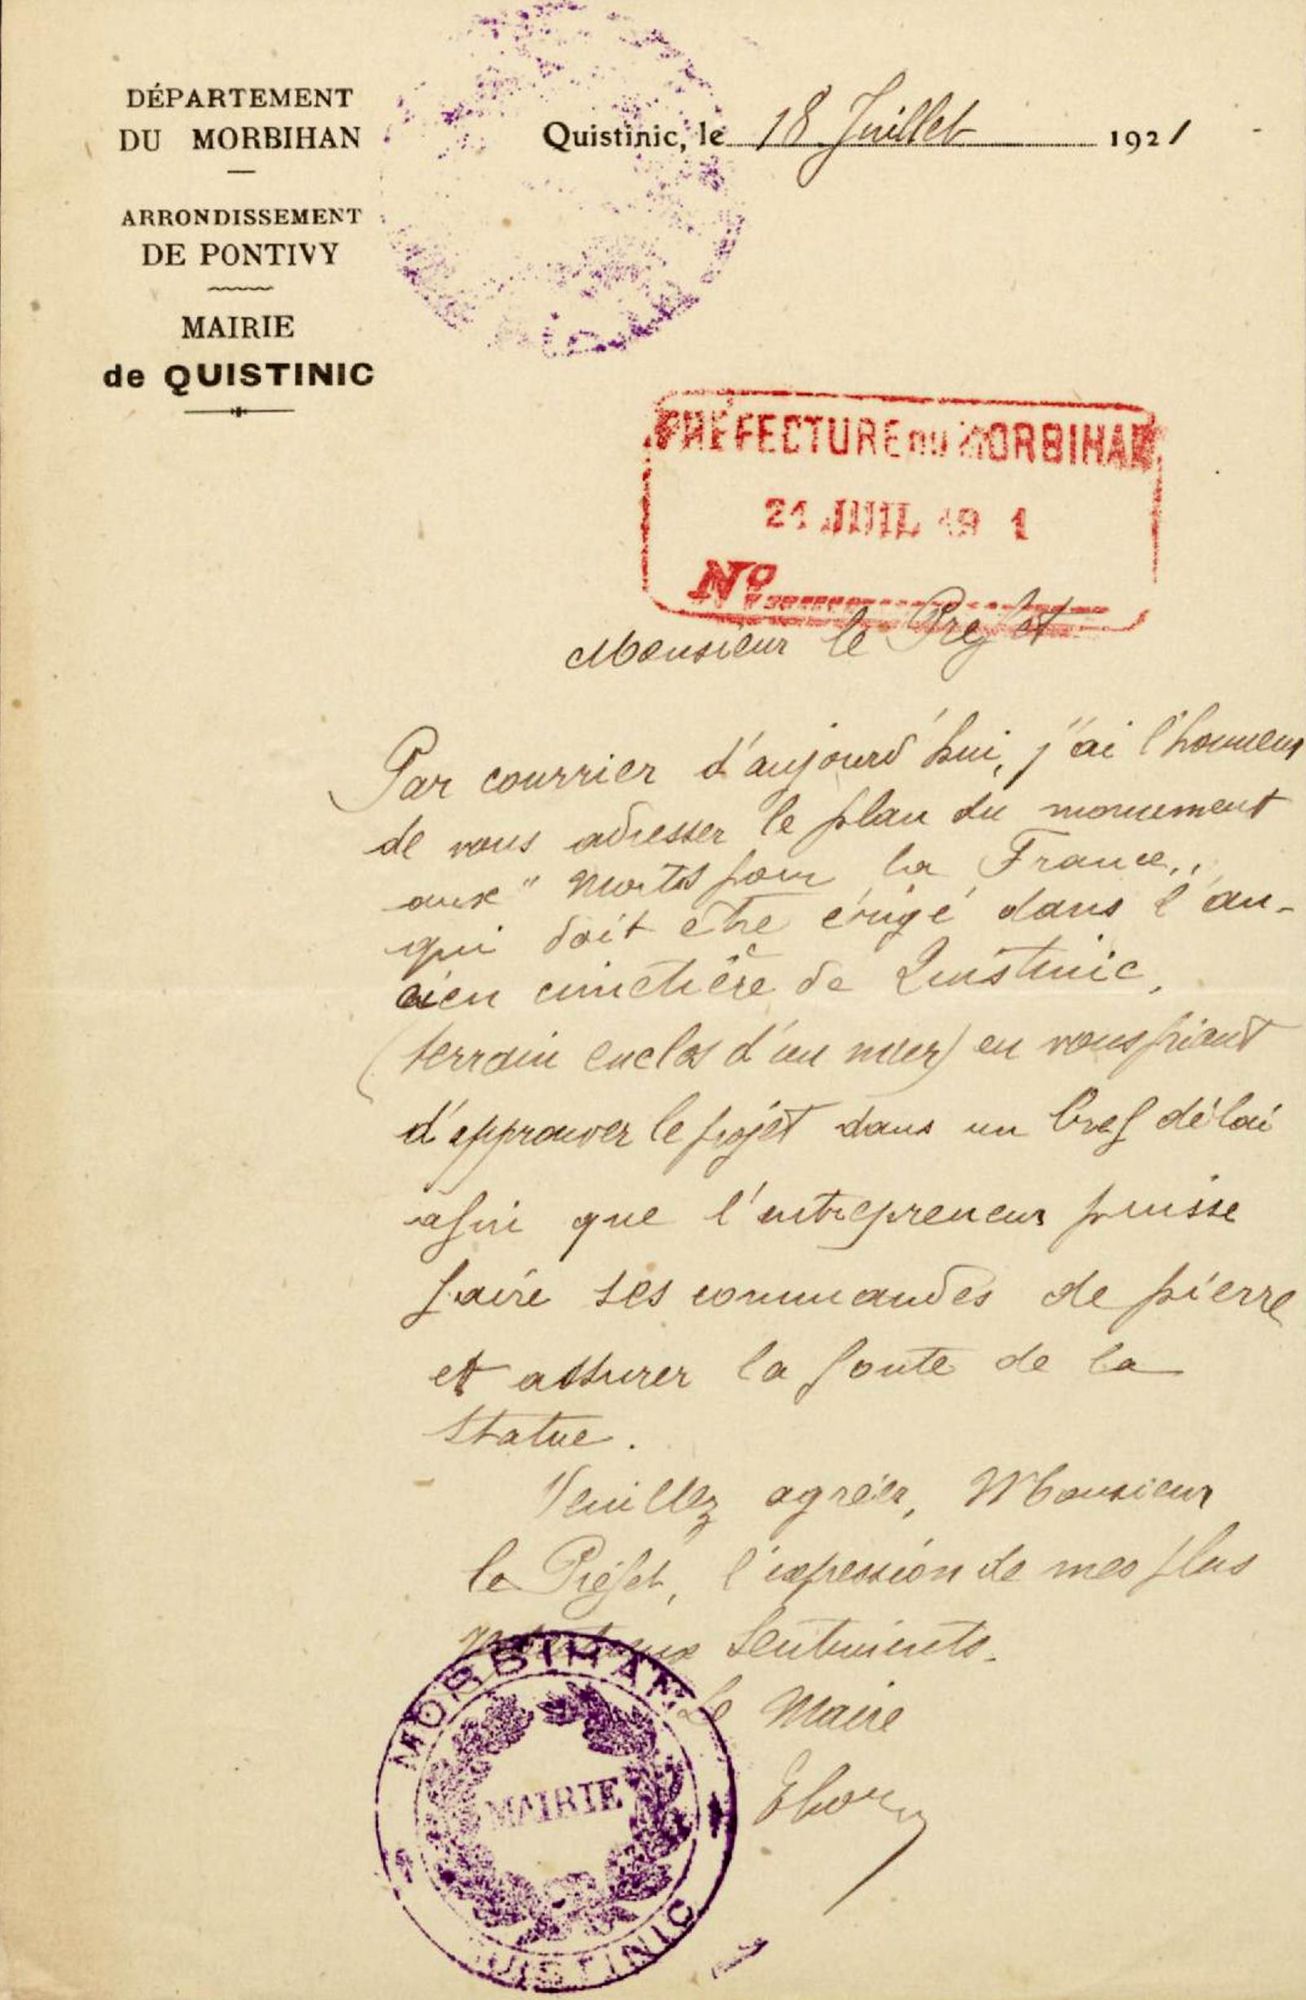 DÉPARTEMENT
DU MORBIHAN
ARRONDISSEMENT
DE PONTIVY
MAIRIE
de QUISTINIC
Quistinic, le 18 Juillet 1921
PRÉFECTURE DU MORBIHAN
21 JUIL 19 1
No
Monsieur le Préfet
Par courrier d'aujourd'hui, j'ai l'honneur
de vous adresser le plan du monument
aux " Morts pour la France,,
qui doit etre érigé dans l'an-
cien cimetière de Quistinic,
(terrain enclos d'un mur) en vous priant
d'approuver le projet dans un bref délai
afin que l'entrepreneur puisse
faire ses commandes de pierre
et assurer la fonte de la
statue.
Veuillez agréer, Monsieur
le Préfet, l'expression de mes plus
sentiments.
Le Maire
MORBIHAN
MAIRIE
QUISTINIC